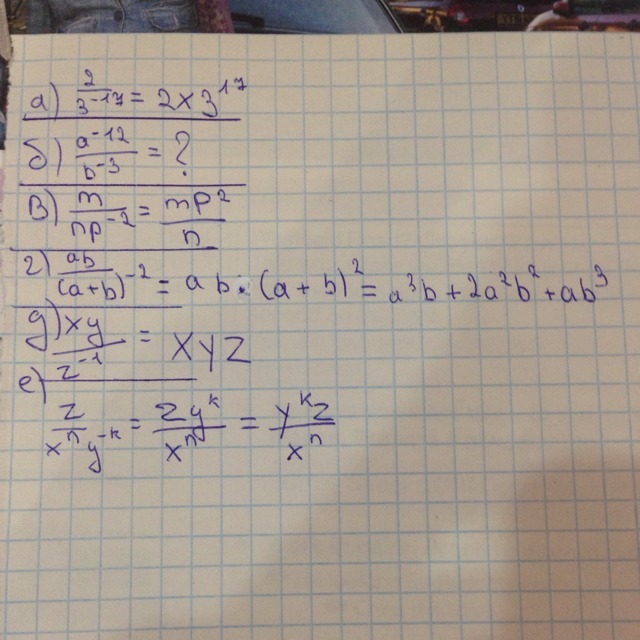 а) 2/3⁻¹⁷ = 2x3¹⁷
б) a⁻¹²/b⁻³ = ?
в) m/np⁻² = mp²/n
г) ab/(a+b)⁻² = ab·(a+b)² = a³b+2a²b²+ab³
д) xy/z⁻¹ = xyz
е)
z/xⁿy⁻ᵏ = zyᵏ/xⁿ = yᵏz/xⁿ